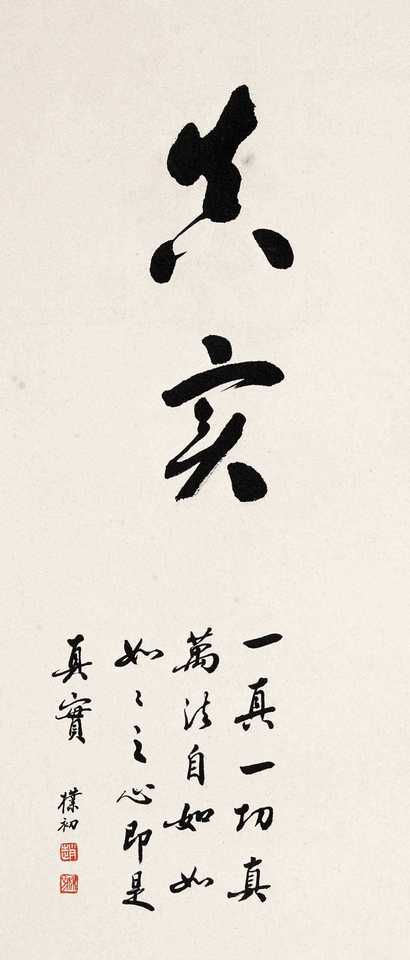 真实
一真一切真
萬法自如如
如〻之心即是
真實
樸初